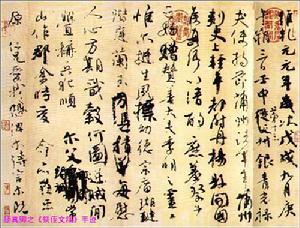 維乾元元年歲次戊戌九月庚
午朔三日壬申第十三叔銀青光祿
夫使持節蒲州諸軍事蒲州
刺史上輕車都尉丹陽縣開國
侯真卿以清酌庶羞祭于
亡姪贈贊善大夫季明之靈
惟爾挺生夙標幼德宗廟瑚璉
階庭蘭玉每慰
人心方期戩穀何圖逆賊間
釁稱兵犯順
爾父
山作郡余時受命亦在平
原仁兄愛我俾爾傳言爾既
顏真卿之《祭侄文稿》手迹